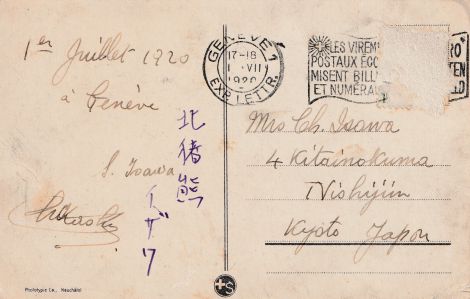 1er Juillet 1920
à Genève
S. Isawa
北猪熊
イザワ
GENÈVE 1
17-18
1. VII
1920
EXP. LETTR.
LES VIREM
POSTAUX ÉCO
MISENT BILL
ET NUMÉRA
Mrs Ch. Isawa
4 Kitainokuma
Nishijin
Kyoto Japon
Phototypie Co., Neuchâtel